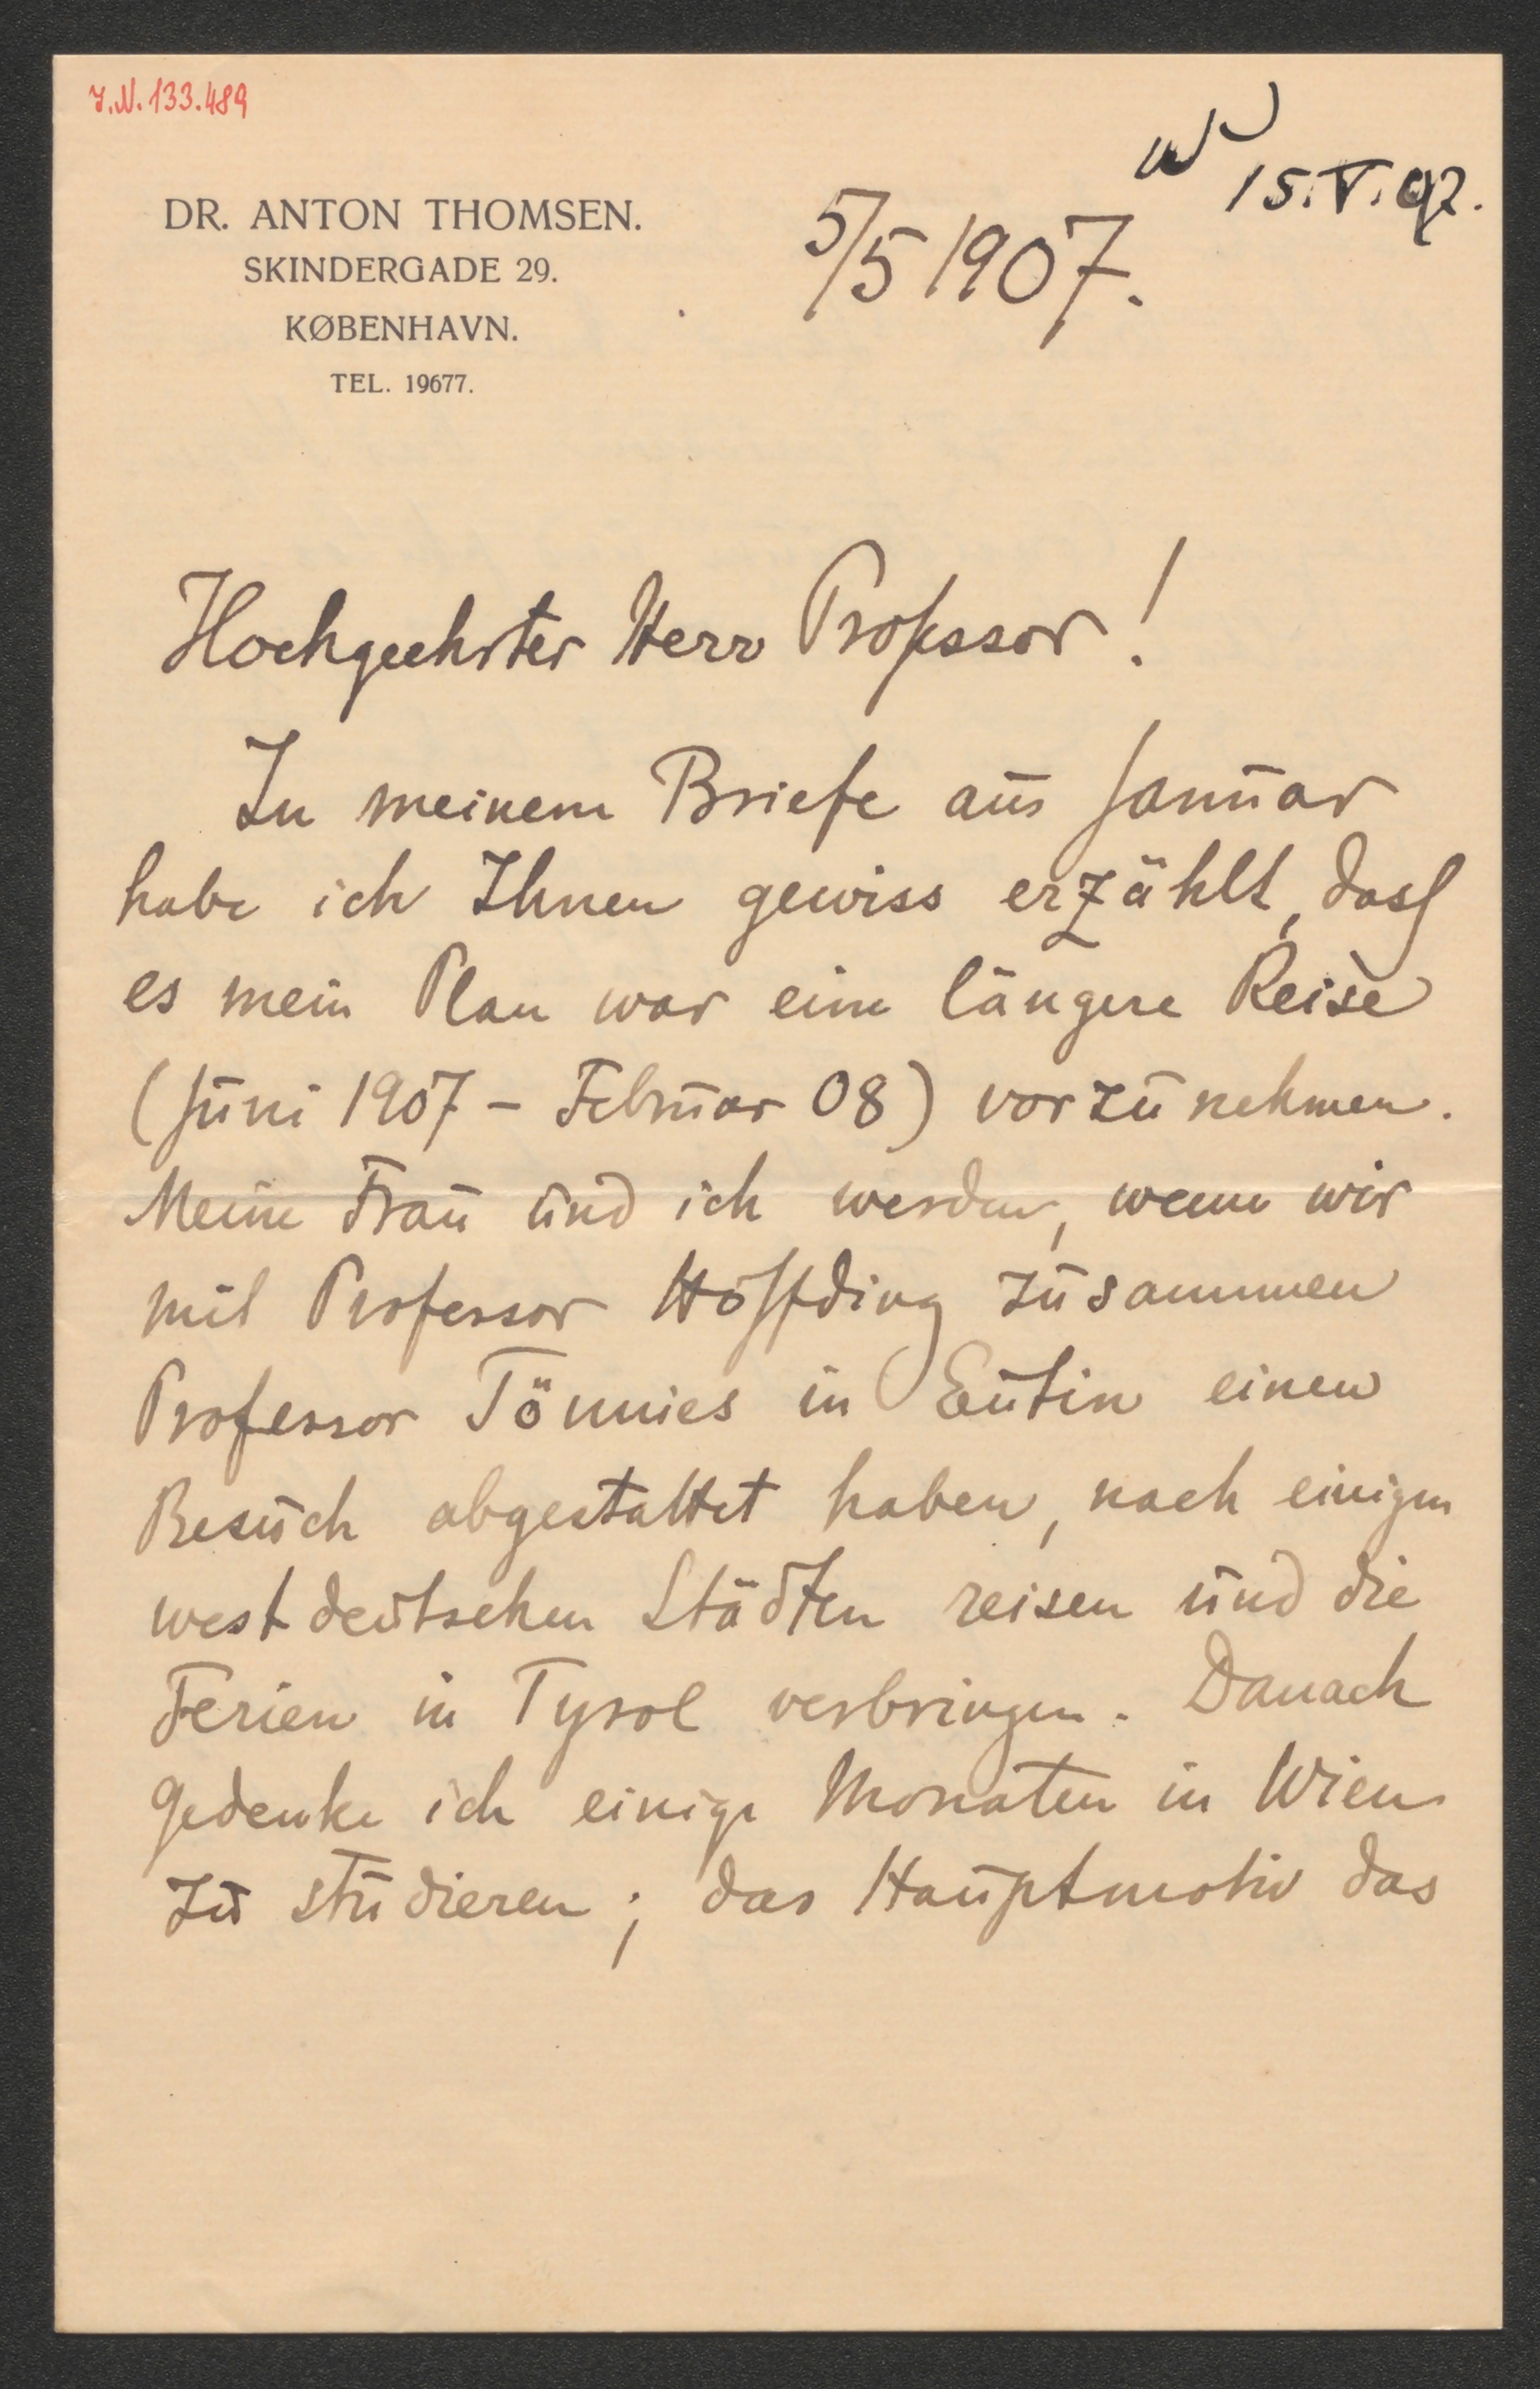 J.N. 133.489
15.V.07.
DR. ANTON THOMSEN.
SKINDERGADE 29.
KØBENHAVN.
TEL. 19677.
5/5 1907.
Hochgeehrter Herr Professor!
In meinem Briefe aus Januar
habe ich Ihnen gewiss erzählt, dass
es mein Plan war eine längere Reise
(Juni 1907 - Februar 08) vorzunehmen.
Meine Frau und ich werden, wenn wir
mit Professor Höffding zusammen
Professor Tönnies in Eutin einen
Besuch abgestattet haben, nach einigen
westdeutschen Städten reisen und die
Ferien in Tyrol verbringen. Danach
gedenke ich einige Monaten in Wien
zu studieren; das Hauptmotiv das